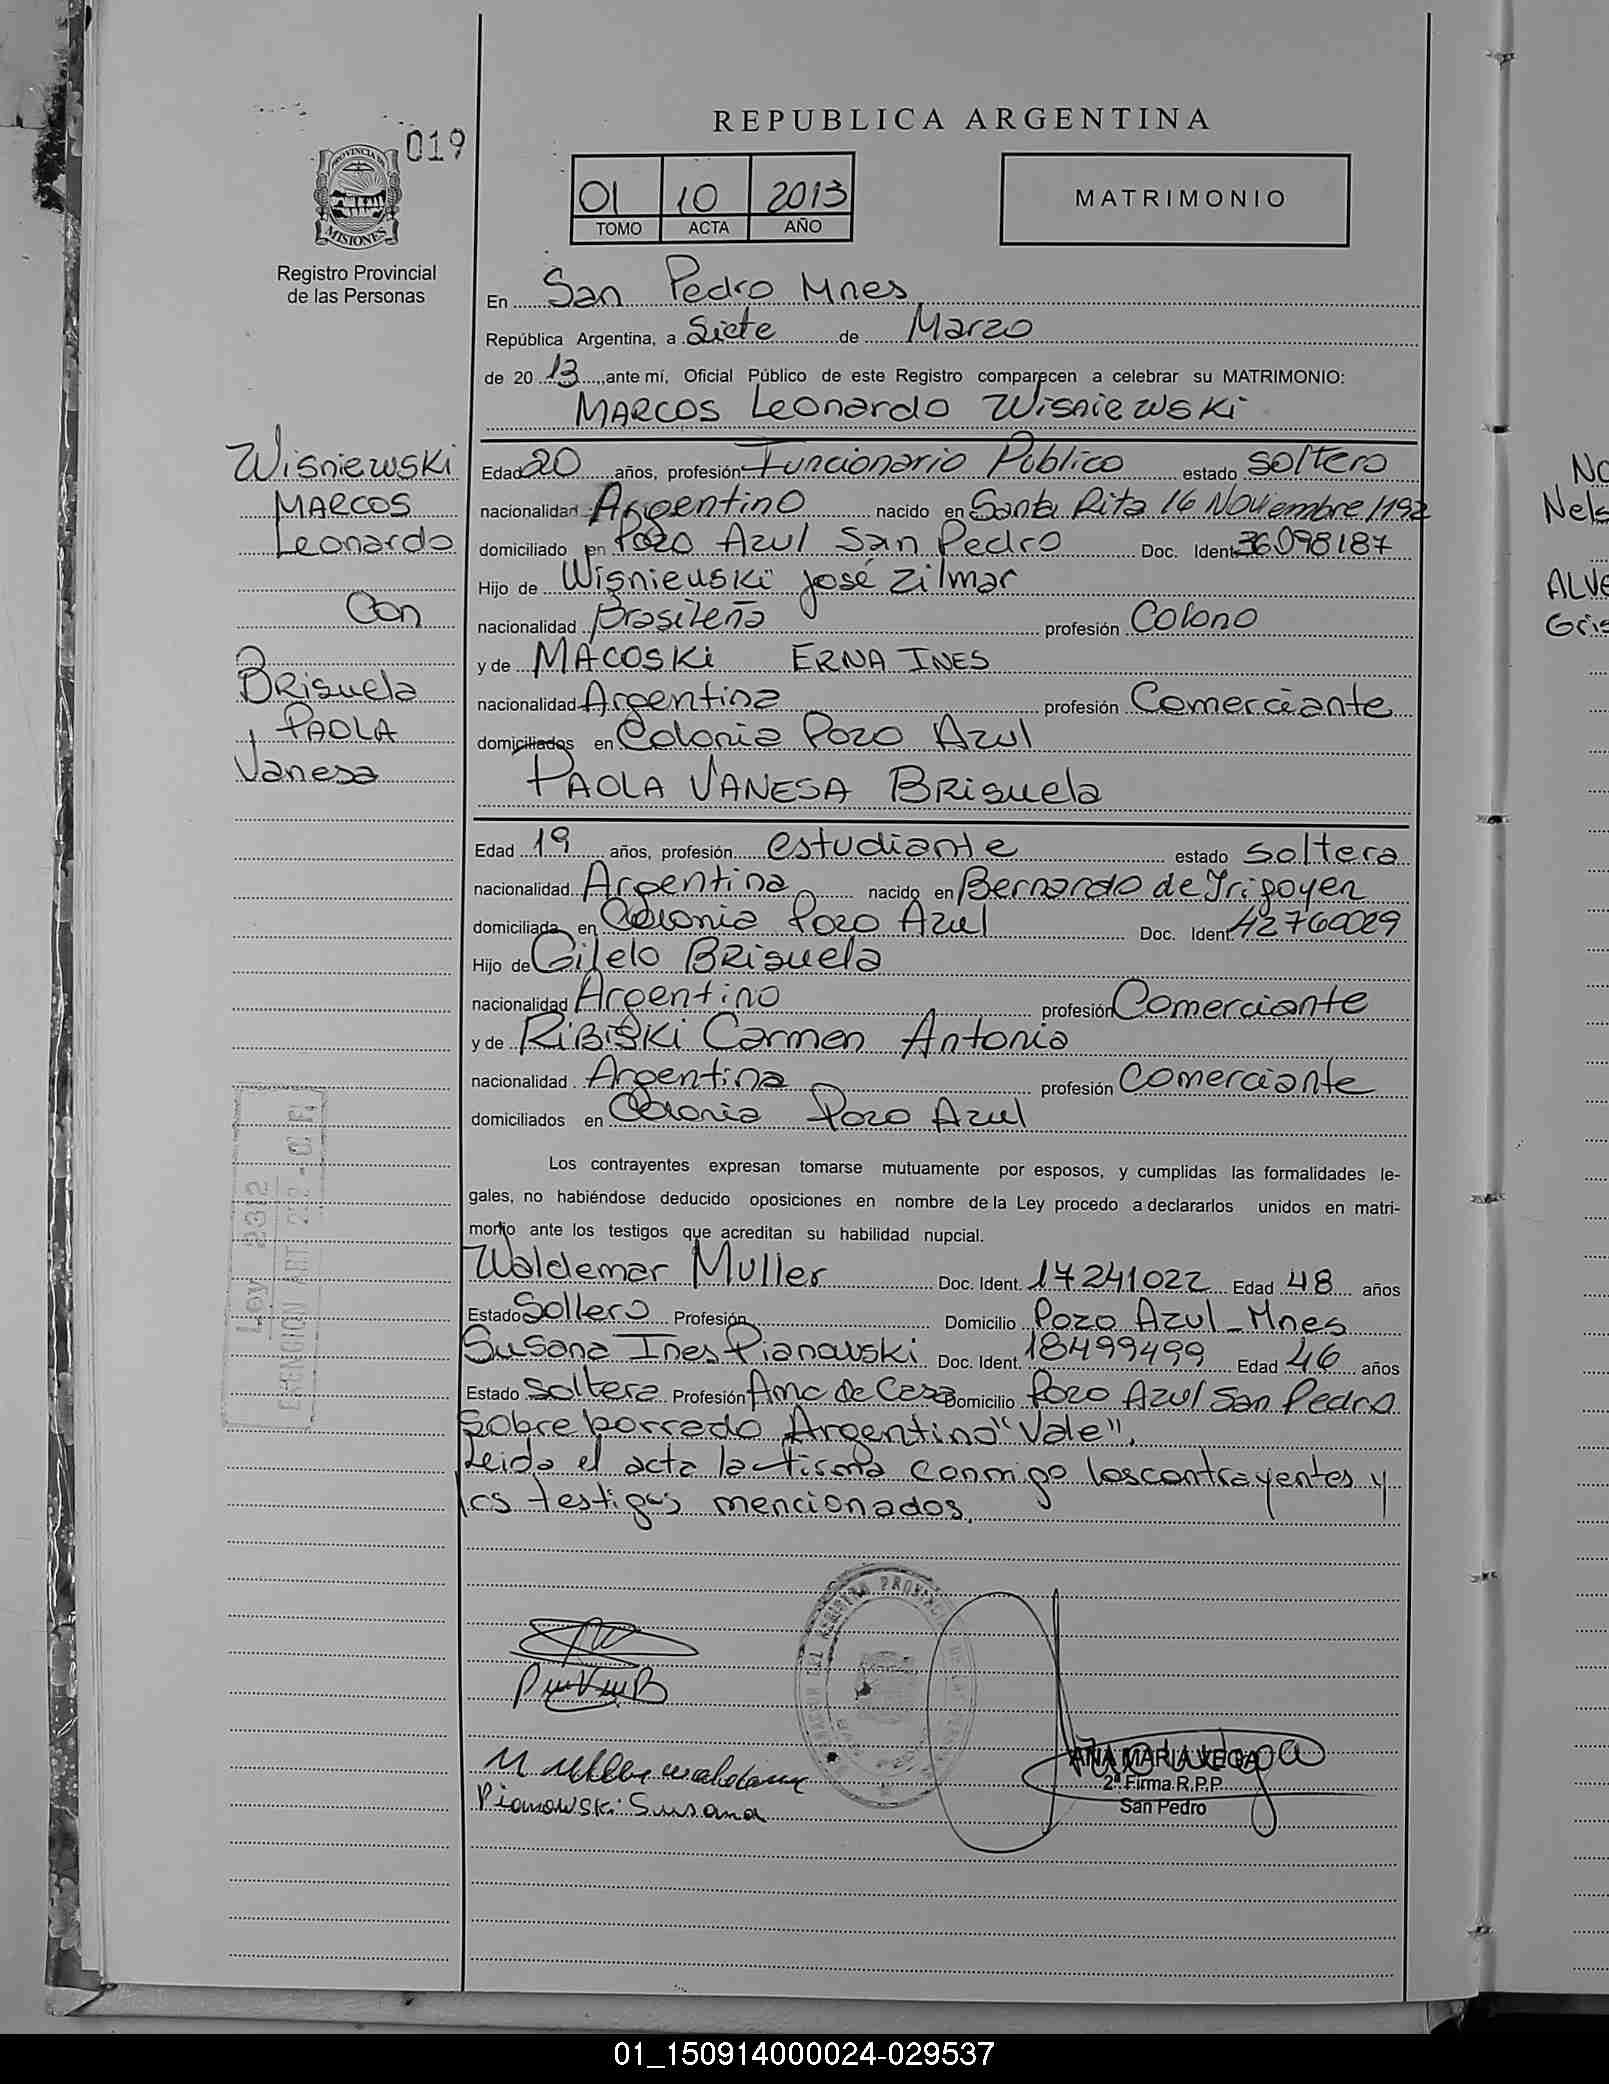 019
REPUBLICA ARGENTINA
01 10 2013
TOMO ACTA AÑO
MATRIMONIO
PROVINCIA DE
MISIONES
Registro Provincial
de las Personas
En San Pedro Mnes
República Argentina, a Siete de Marzo
de 20 13 ,ante mí, Oficial Público de este Registro comparecen a celebrar su MATRIMONIO:
MARCOS Leonardo Wisniewski
Wisniewski
MARCOS
Leonardo
Con
BRisuela
PAOLA
Vanesa
Edad 20 años, profesión Funcionario Público estado soltero
nacionalidad Argentino nacido en Santa Rita 16 Noviembre/192
domiciliado en Pozo Azul San Pedro Doc. Ident 36098187
Hijo de Wisniewski José Zilmar
nacionalidad Brasileña profesión Colono
y de MACOSKi ERNA INES
nacionalidad Argentina profesión Comerciante
domiciliados en Colonia Pozo Azul
PAOLA VANESA BRisuela
Edad 19 años, profesión estudiante estado soltera
nacionalidad Argentina nacido en Bernardo de Irigoyen
domiciliada en Colonia Pozo Azul Doc. Ident. 42760029
Hijo de Gilelo BRisuela
nacionalidad Argentino profesión Comerciante
y de RiBiSKi Carmen Antonia
nacionalidad Argentina profesión Comerciante
domiciliados en Colonia Pozo Azul
Los contrayentes expresan tomarse mutuamente por esposos, y cumplidas las formalidades le-
gales, no habiéndose deducido oposiciones en nombre de la Ley procedo a declararlos unidos en matri-
monio ante los testigos que acreditan su habilidad nupcial.
Waldemar Muller Doc. Ident. 17241022 Edad 48 años
Estado Soltero Profesión Domicilio Pozo Azul - Mnes
Susana Ines Pianowski Doc. Ident. 18499499 Edad 46 años
Estado soltera Profesión Ama de Casa Domicilio Pozo Azul San Pedro
Sobre borrado Argentino "Vale".
Leida el acta la firma conmigo los contrayentes y
los testigos mencionados.
Ley 2312
Pianowski Susana
ANA MARIA VEGA
2ª Firma R.P.P.
San Pedro
No
Nels
ALVE
Gris
01_150914000024-029537